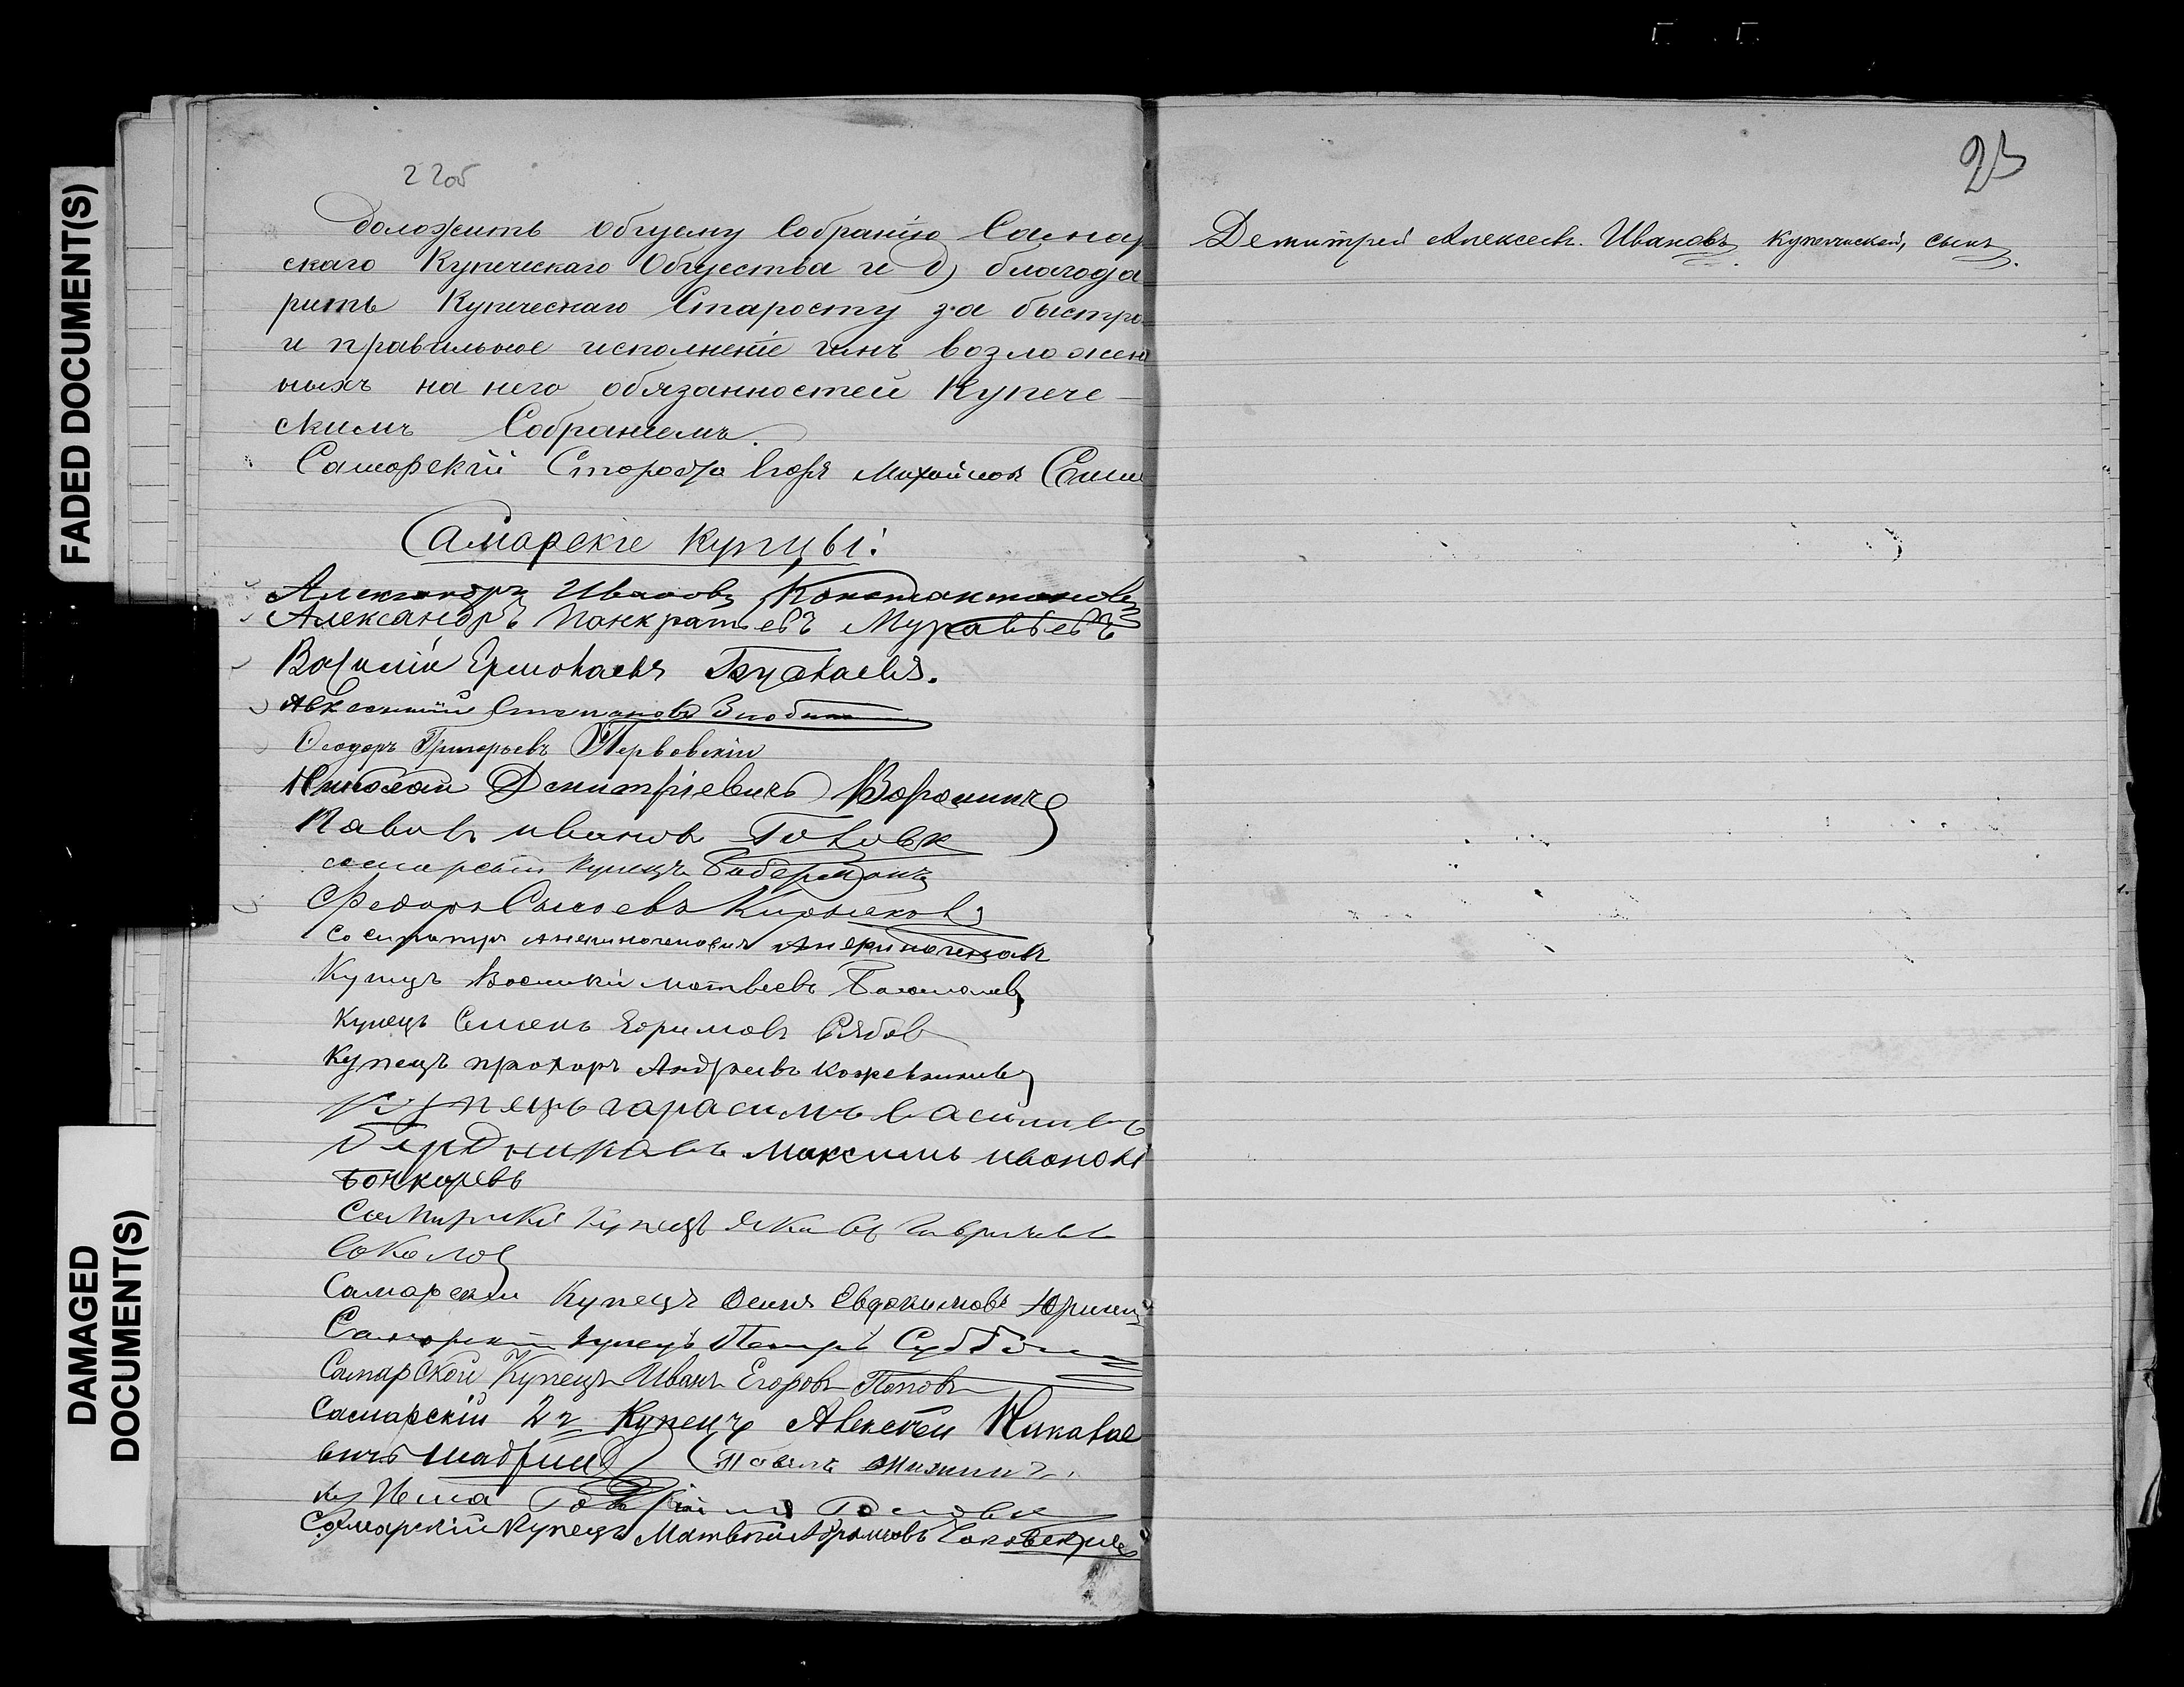 FADED DOCUMENT(S)
DAMAGED
DOCUMENT(S)
22об
доложить общему собранію Самар
скаго Купеческаго Общества и д) благода
рить Купеческаго Старосту за быстро
и правильное исполненіе имъ возложен
ныхъ на него обязанностей Купече-
скимъ Собраніемъ.
Самарскій Староста Егоръ Михайловъ
Самарскіе купцы:
Александръ Ивановъ Константиновъ
Александръ Панкратьевъ Муравьевъ
Василій Ермолаевъ
Авксентий Степановъ Злобинъ
Ѳеодоръ Григорьевъ Первовскій
Николай Дмитріевичъ Воронинъ
Павилъ ивановъ Головъ
самарскій купецъ
Федоръ Сысоевъ Кириловъ
Купецъ Василий матвеевъ
Купецъ Семенъ Ефимовъ Рябов
Купецъ прохоръ Андреевъ кожевников
Купецъ гарасимъ василивъ
бердниковъ Максимъ иванов
бочкаревъ
Самарский Купецъ Яковъ Гавриловъ
Соколов
Самарскій Купецъ Осипъ Евдокимовъ Юринъ
Самарскій купецъ Петръ
Самарской Купецъ Иванъ Егоровъ Поповъ
Самарскій 2й Купецъ Алексей Никалае
вичъ шадрин Павелъ
Самарскій Купецъ Матвѣй Абрамовъ
23
Демитрей Алексеевъ. Ивановъ купеческай, сынъ.